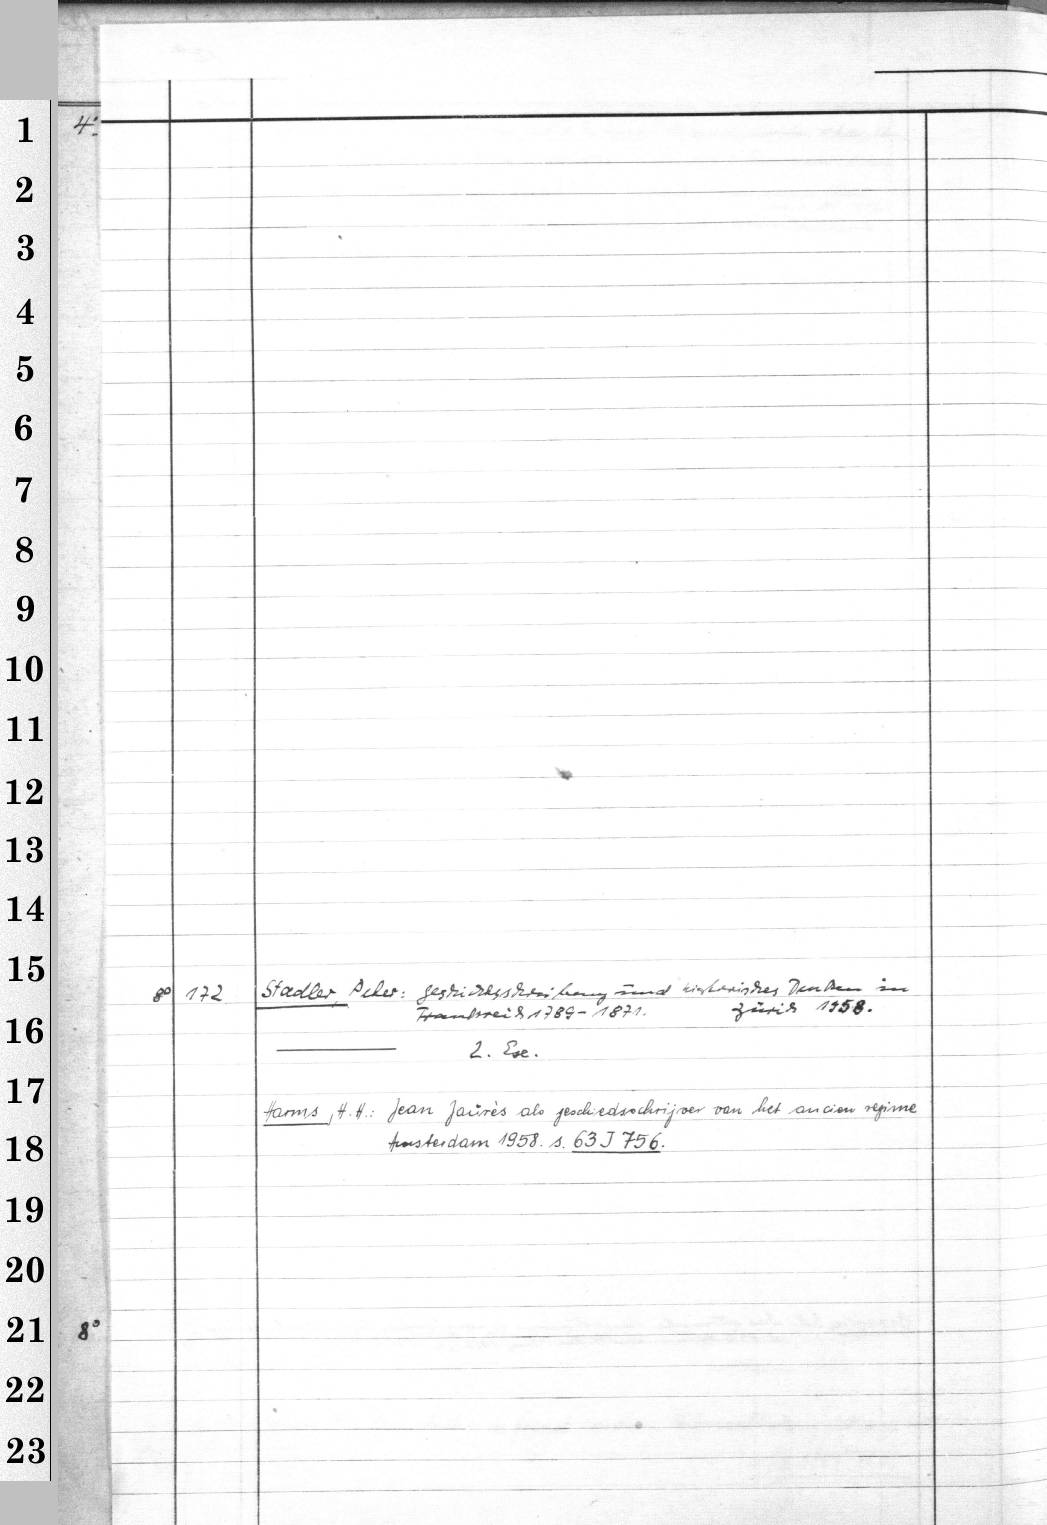 1 4°.
2
3
4
5
6
7
8
9
10
11
12
13
14
15
8° 172 Stadler, Peter: Geschichtsschreibung und historisches Denken in
Frankreich 1789-1871. Zürich 1958.
16
2. Exe.
17
Harms, H.H.: Jean Jaurès als geschiedsschrijver van het ancien regime
Amsterdam 1958. s. 63 J 756.
18
19
20
21 8°
22
23